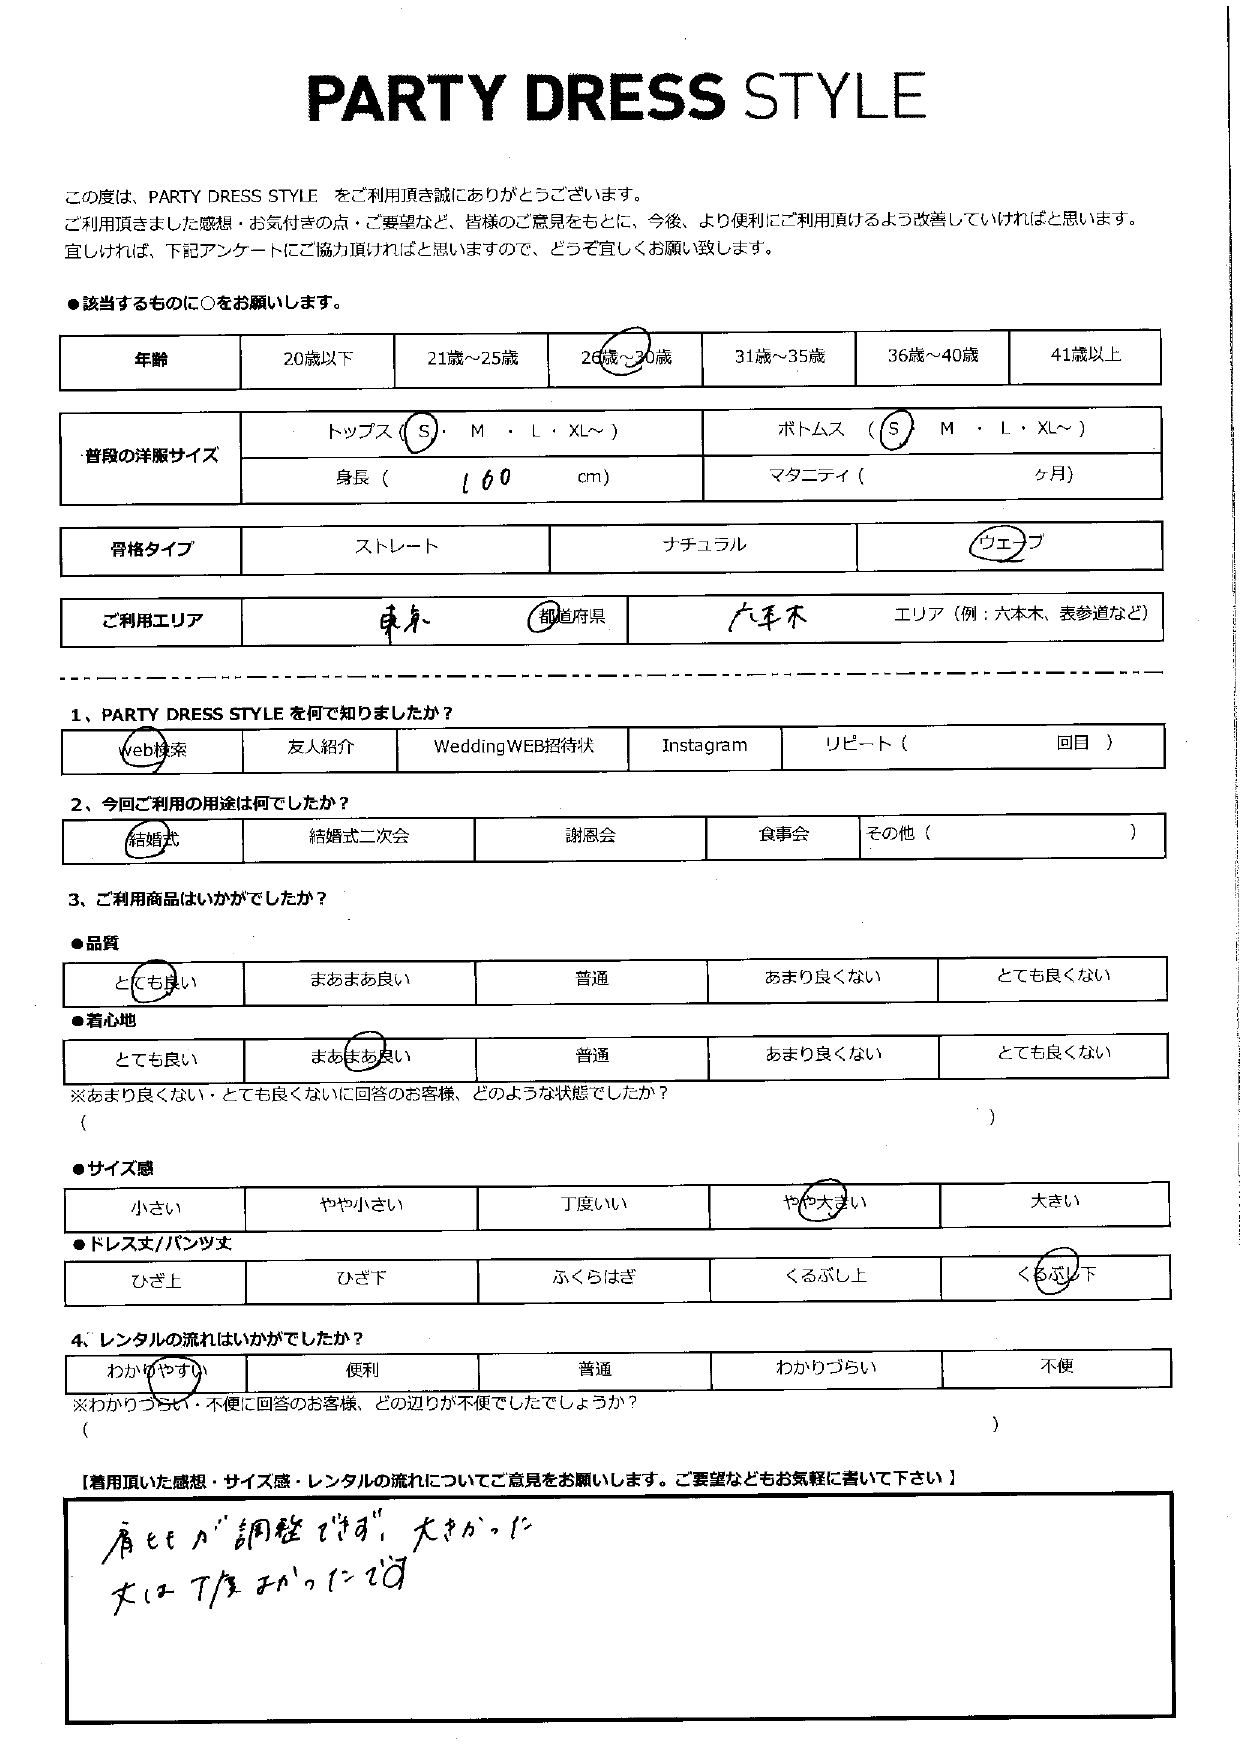 PARTY DRESS STYLE
この度は、PARTY DRESS STYLE をご利用頂き誠にありがとうございます。
ご利用頂きました感想・お気付きの点・ご要望など、皆様のご意見をもとに、今後、より便利にご利用頂けるよう改善していければと思います。
宜しければ、下記アンケートにご協力頂ければと思いますので、どうぞ宜しくお願い致します。
●該当するものに○をお願いします。
年齢 20歳以下 21歳～25歳 26歳～30歳 31歳～35歳 36歳～40歳 41歳以上
普段の洋服サイズ
トップス ( S ・ M ・ L ・ XL～ ) ボトムス ( S ・ M ・ L ・ XL～ )
身長 ( 160 cm) マタニティ ( ヶ月)
骨格タイプ ストレート ナチュラル ウェーブ
ご利用エリア 東京 都道府県 六本木 エリア（例：六本木、表参道など）
1、PARTY DRESS STYLE を何で知りましたか？
web検索 友人紹介 WeddingWEB招待状 Instagram リピート ( 回目 )
2、今回ご利用の用途は何でしたか？
結婚式 結婚式二次会 謝恩会 食事会 その他 ( )
3、ご利用商品はいかがでしたか？
●品質
とても良い まあまあ良い 普通 あまり良くない とても良くない
●着心地
とても良い まあまあ良い 普通 あまり良くない とても良くない
※あまり良くない・とても良くないに回答のお客様、どのような状態でしたか？
( )
●サイズ感
小さい やや小さい 丁度いい やや大きい 大きい
●ドレス丈/パンツ丈
ひざ上 ひざ下 ふくらはぎ くるぶし上 くるぶし下
4、レンタルの流れはいかがでしたか？
わかりやすい 便利 普通 わかりづらい 不便
※わかりづらい・不便に回答のお客様、どの辺りが不便でしたでしょうか？
( )
【着用頂いた感想・サイズ感・レンタルの流れについてご意見をお願いします。ご要望などもお気軽に書いて下さい】
肩ヒモが調整できず、大きかった
丈は丁度よかったです